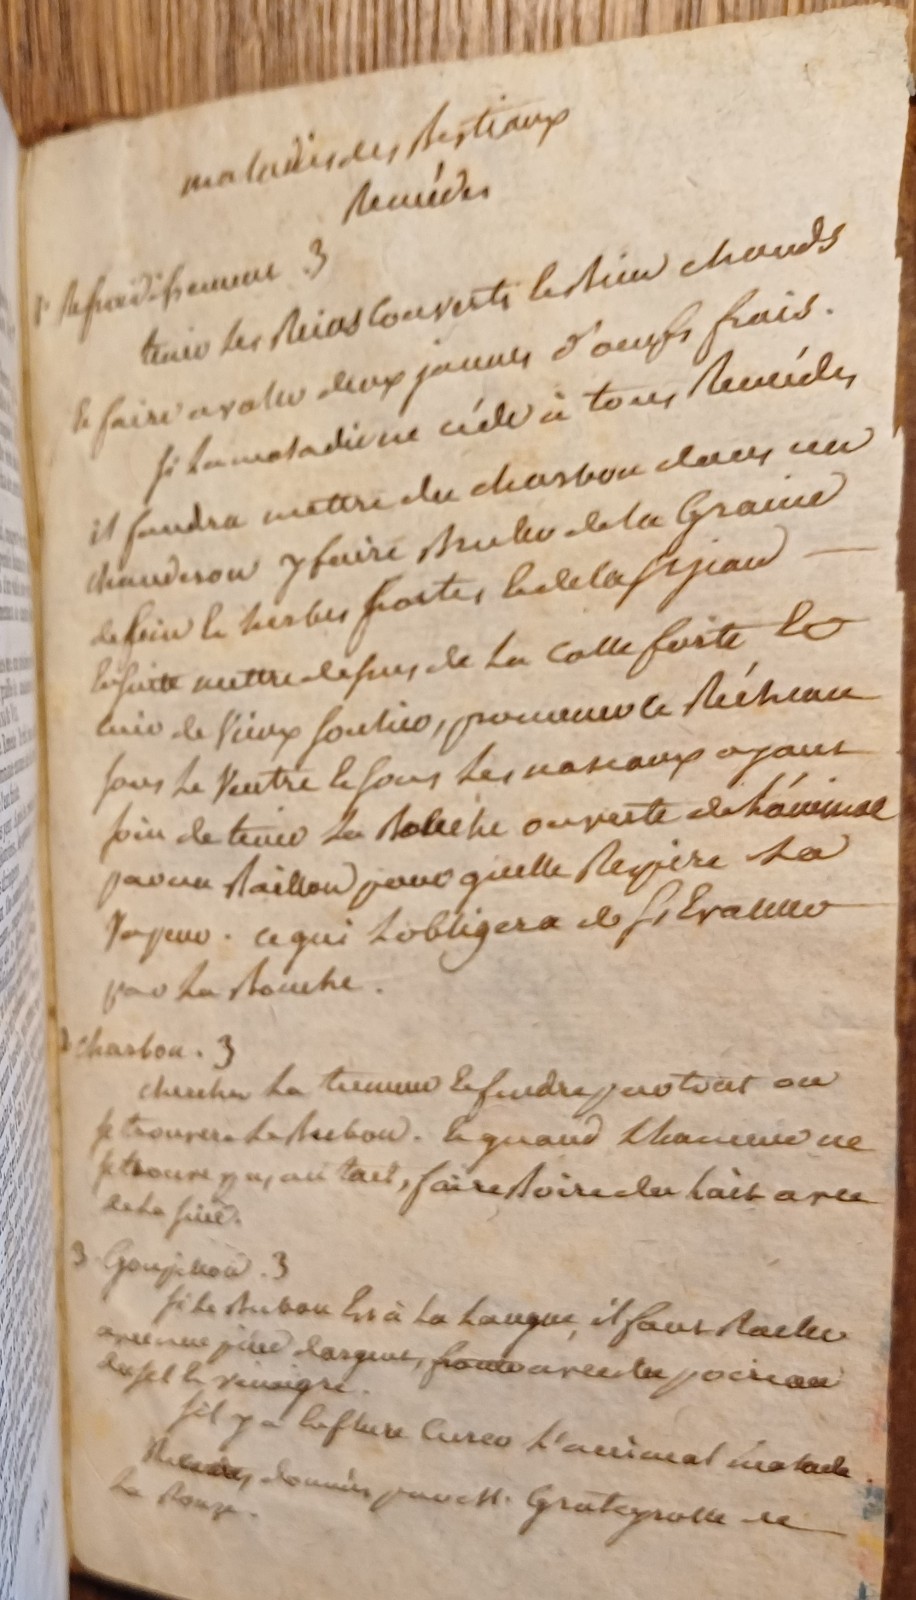 maladies des Bestiaux
Remèdes
1° Refroidissement. 3
tenir les Reins Couverts & Bien chauds
& faire avaler deux jaunes d'oeufs frais.
Si la maladie ne cède à tous Remédes
il faudra mettre du charbon dans un
chauderon y faire Bruler de la Graine
de foin & herbes fortes & de la
Ensuite mettre dessus de la Colle forte &
cuir de Vieux soulier, promener ce Récheau
sous le Ventre & sous les naseaux ayant
soin de tenir la Bouche ouverte de L'animal
par un Baillon pour quelle Respire la
Vapeur. ce qui L'obligera de s'Evacuer
par la Bouche.
2 charbon. 3
chercher la tumeur & fendre partout ou
se trouvera le Bubon. & quand L'haumie ne
se trouve pas au tact, faire Boire du lait avec
de la suie.
3 Goupillon. 3
Si le Bubon Est à la Langue, il faut Racler
avec une pièce d'argent, avec du poireau
du sel & vinaigre.
S'il y a Enflure Curer L'animal malade
Remèdes donnés par M. Grateyrolle de
la